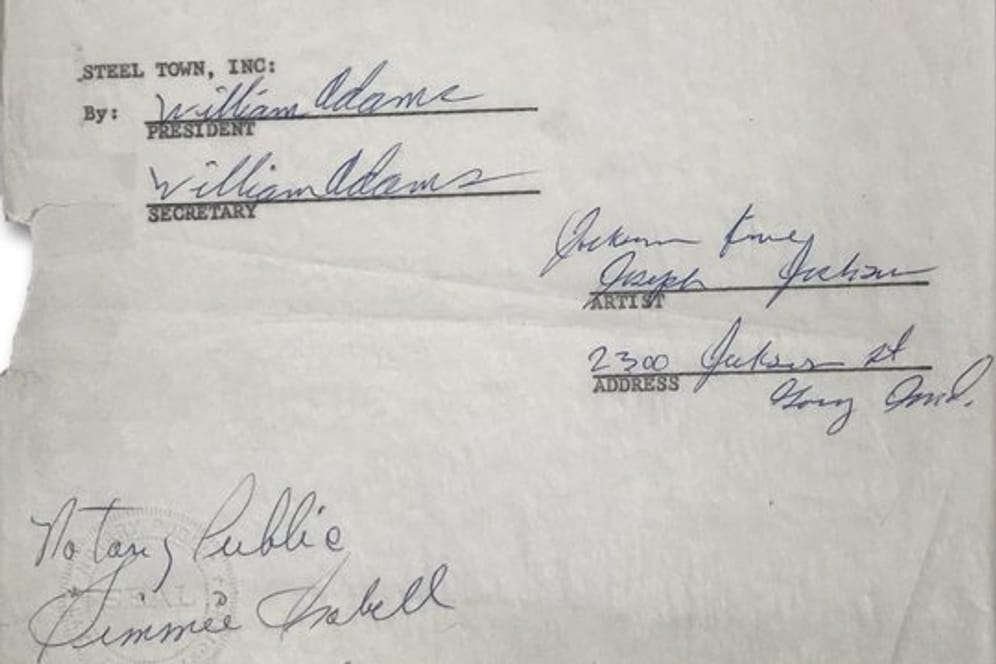 STEEL TOWN, INC:
By: William Adams
PRESIDENT
William Adams
SECRETARY
Jackson Five
Joseph Jackson
ARTIST
2300 Jackson st
ADDRESS
Gary Ind.
Notary Public
SEAL
Jimmie Isabell